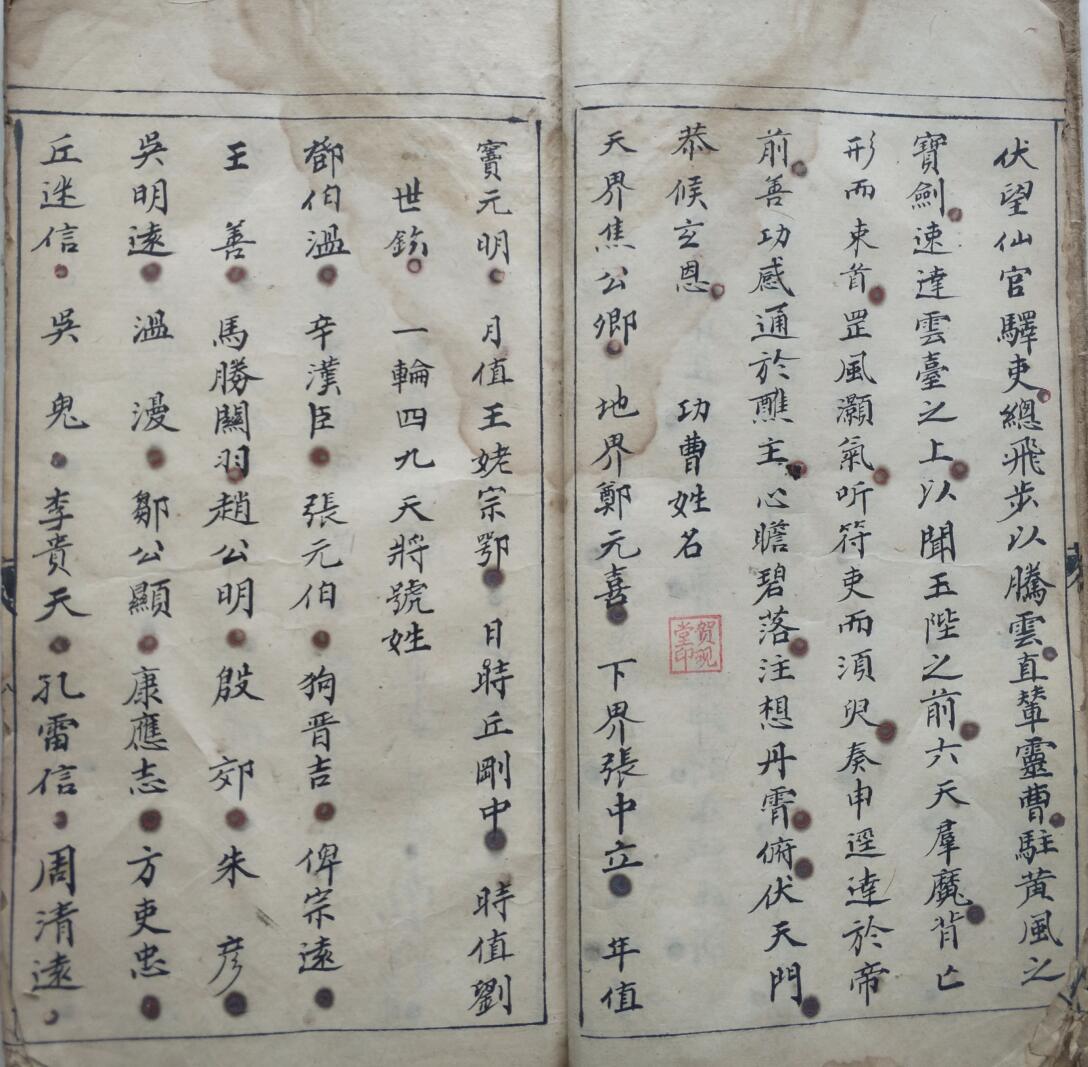 伏望仙官驛吏總飛步以騰雲直輦靈曹駐黃風之
寶劍速達雲臺之上以聞玉陛之前六天羣魔背亡
形而束首罡風灝氣听符吏而須臾奏申逕達於帝
前善功感通於醮主心瞻碧落注想丹霄俯伏天門
恭候玄恩 功曹姓名
賀硯堂印
天界焦公卿 地界鄭元喜 下界張中立 年值
竇元明 月值王姥宗鄂 日時丘剛中 時值劉
世鈴 一輪四九天將號姓
鄧伯溫 辛漢臣 張元伯 狗晋吉 俾宗遠
王善 馬勝關羽趙公明 殷郊 朱彦
吳明遠 溫漫 鄒公顯 康應志 方吏忠
丘迷信 吳鬼 李貴天 孔雷信 周清遠